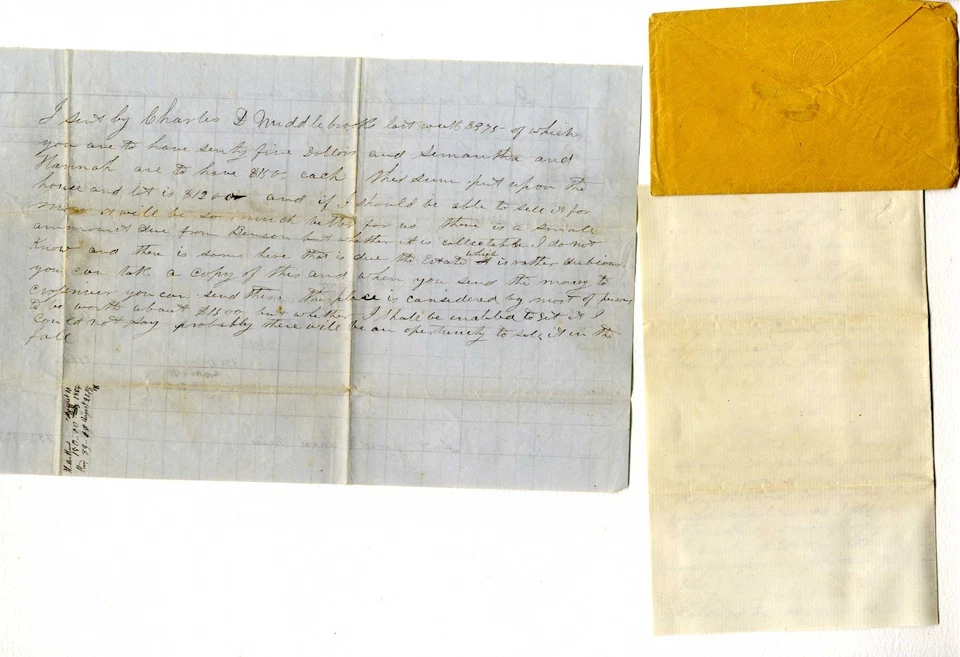 I sent by Charles D Middlebrooks last week $375- of which
you are to have senty five Dollors and Semantha and
Hannah are to have $150. each This sum put upon the
house and lot is $1200 and if I should be able to sell it for
more it will be so much better for us there is a small
ammount due from Benson but whether it is collectable I do not
Know and there is some here that is due the Estate which is rather dubious
you can take a copy of this and when you send the money to
you can send them this place is considered by most of
to be worth about $1500 but whether I shall be enabled to get it I
could not say probably there will be an opertunity to sell it in the
fall